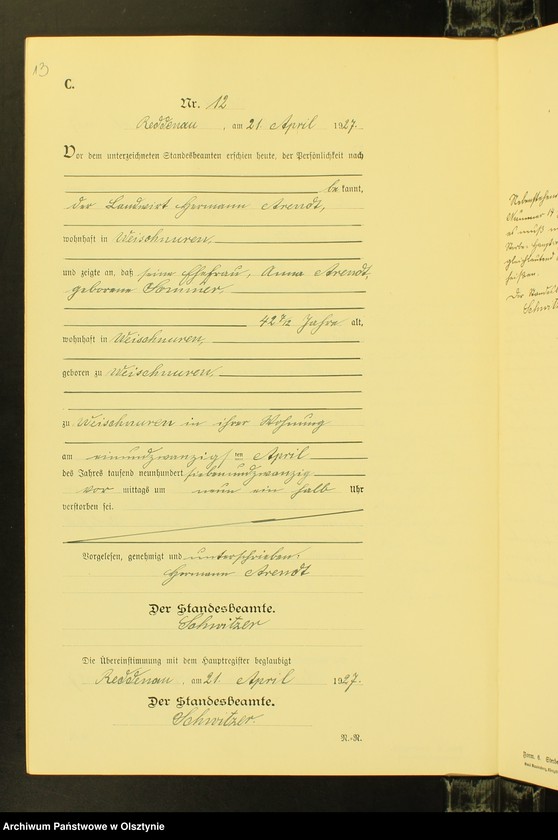 13
C.
Nr. 12
Reddenau, am 21 April 1927.
Vor dem unterzeichneten Standesbeamten erschien heute, der Persönlichkeit nach
be kannt,
der Landwirt Hermann Arendt,
wohnhaft in Weischnuren,
und zeigte an, daß seine Ehefrau, Anna Arendt,
geborene Sommer,
42 Jahre alt,
wohnhaft in Weischnuren,
geboren zu Weischnuren,
zu Weischnuren in ihrer Wohnung
am einundzwanzigsten April
des Jahres tausend neunhundert siebenundzwanzig
vor mittags um neun ein halb Uhr
verstorben sei.
Vorgelesen, genehmigt und unterschrieben.
Hermann Arendt
Der Standesbeamte.
Schwitzer
Die Übereinstimmung mit dem Hauptregister beglaubigt
Reddenau, am 21. April 1927.
Der Standesbeamte.
Schwitzer.
R.-R.
Nebenstehen
Nummer 14
es muß
gleichlautend
heißen.
Der Standes
Schwitz
Form. C. Sterbe
Archiwum Państwowe w Olsztynie